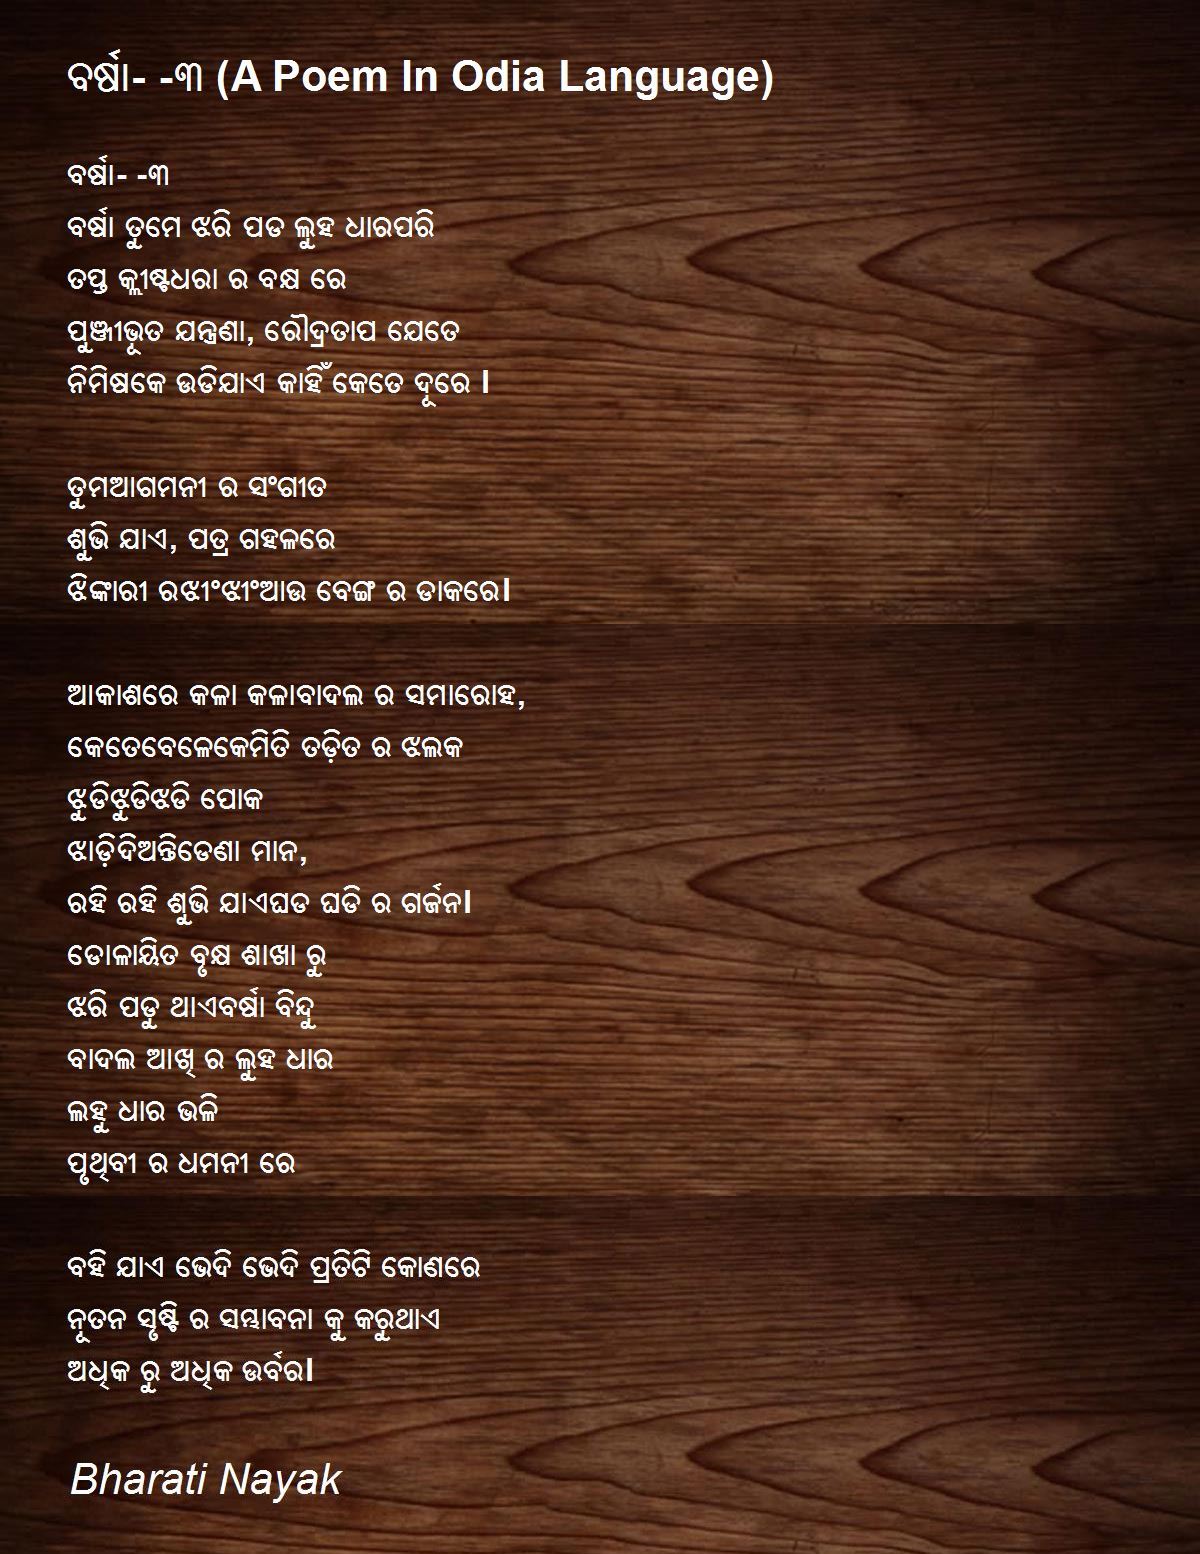 ବର୍ଷା- -୩ (A Poem In Odia Language)
ବର୍ଷା- -୩
ବର୍ଷା ତୁମେ ଝରି ପଡ ଲୁହ ଧାରପରି
ତପ୍ତ କ୍ଲୀଷ୍ଟଧରା ର ବକ୍ଷ ରେ
ପୁଞ୍ଜୀଭୂତ ଯନ୍ତ୍ରଣା, ରୌଦ୍ରତାପ ଯେତେ
ନିମିଷକେ ଉଡିଯାଏ କାହିଁ କେତେ ଦୂରେ l
ତୁମଆଗମନୀ ର ସଂଗୀତ
ଶୁଭି ଯାଏ, ପତ୍ର ଗହଳରେ
ଝିଙ୍କାରୀ ରଝୀଂଝୀଂଆଉ ବେଙ୍ଗ ର ଡାକରେl
ଆକାଶରେ କଳା କଳାବାଦଲ ର ସମାରୋହ,
କେତେବେଳେକେମିତି ତଡ଼ିତ ର ଝଲକ
ଝୁଡିଝୁଡିଝଡି ପୋକ
ଝାଡ଼ିଦିଅନ୍ତିଡେଣା ମାନ,
ରହି ରହି ଶୁଭି ଯାଏଘଡ ଘଡି ର ଗର୍ଜନl
ଡୋଳାୟିତ ବୃକ୍ଷ ଶାଖା ରୁ
ଝରି ପଡୁ ଥାଏବର୍ଷା ବିନ୍ଦୁ
ବାଦଲ ଆଖି ର ଲୁହ ଧାର
ଲହୁ ଧାର ଭଳି
ପୃଥିବୀ ର ଧମନୀ ରେ
ବହି ଯାଏ ଭେଦି ଭେଦି ପ୍ରତିଟି କୋଣରେ
ନୂତନ ସୃଷ୍ଟି ର ସମ୍ଭାବନା କୁ କରୁଥାଏ
ଅଧିକ ରୁ ଅଧିକ ଉର୍ବରl
Bharati Nayak